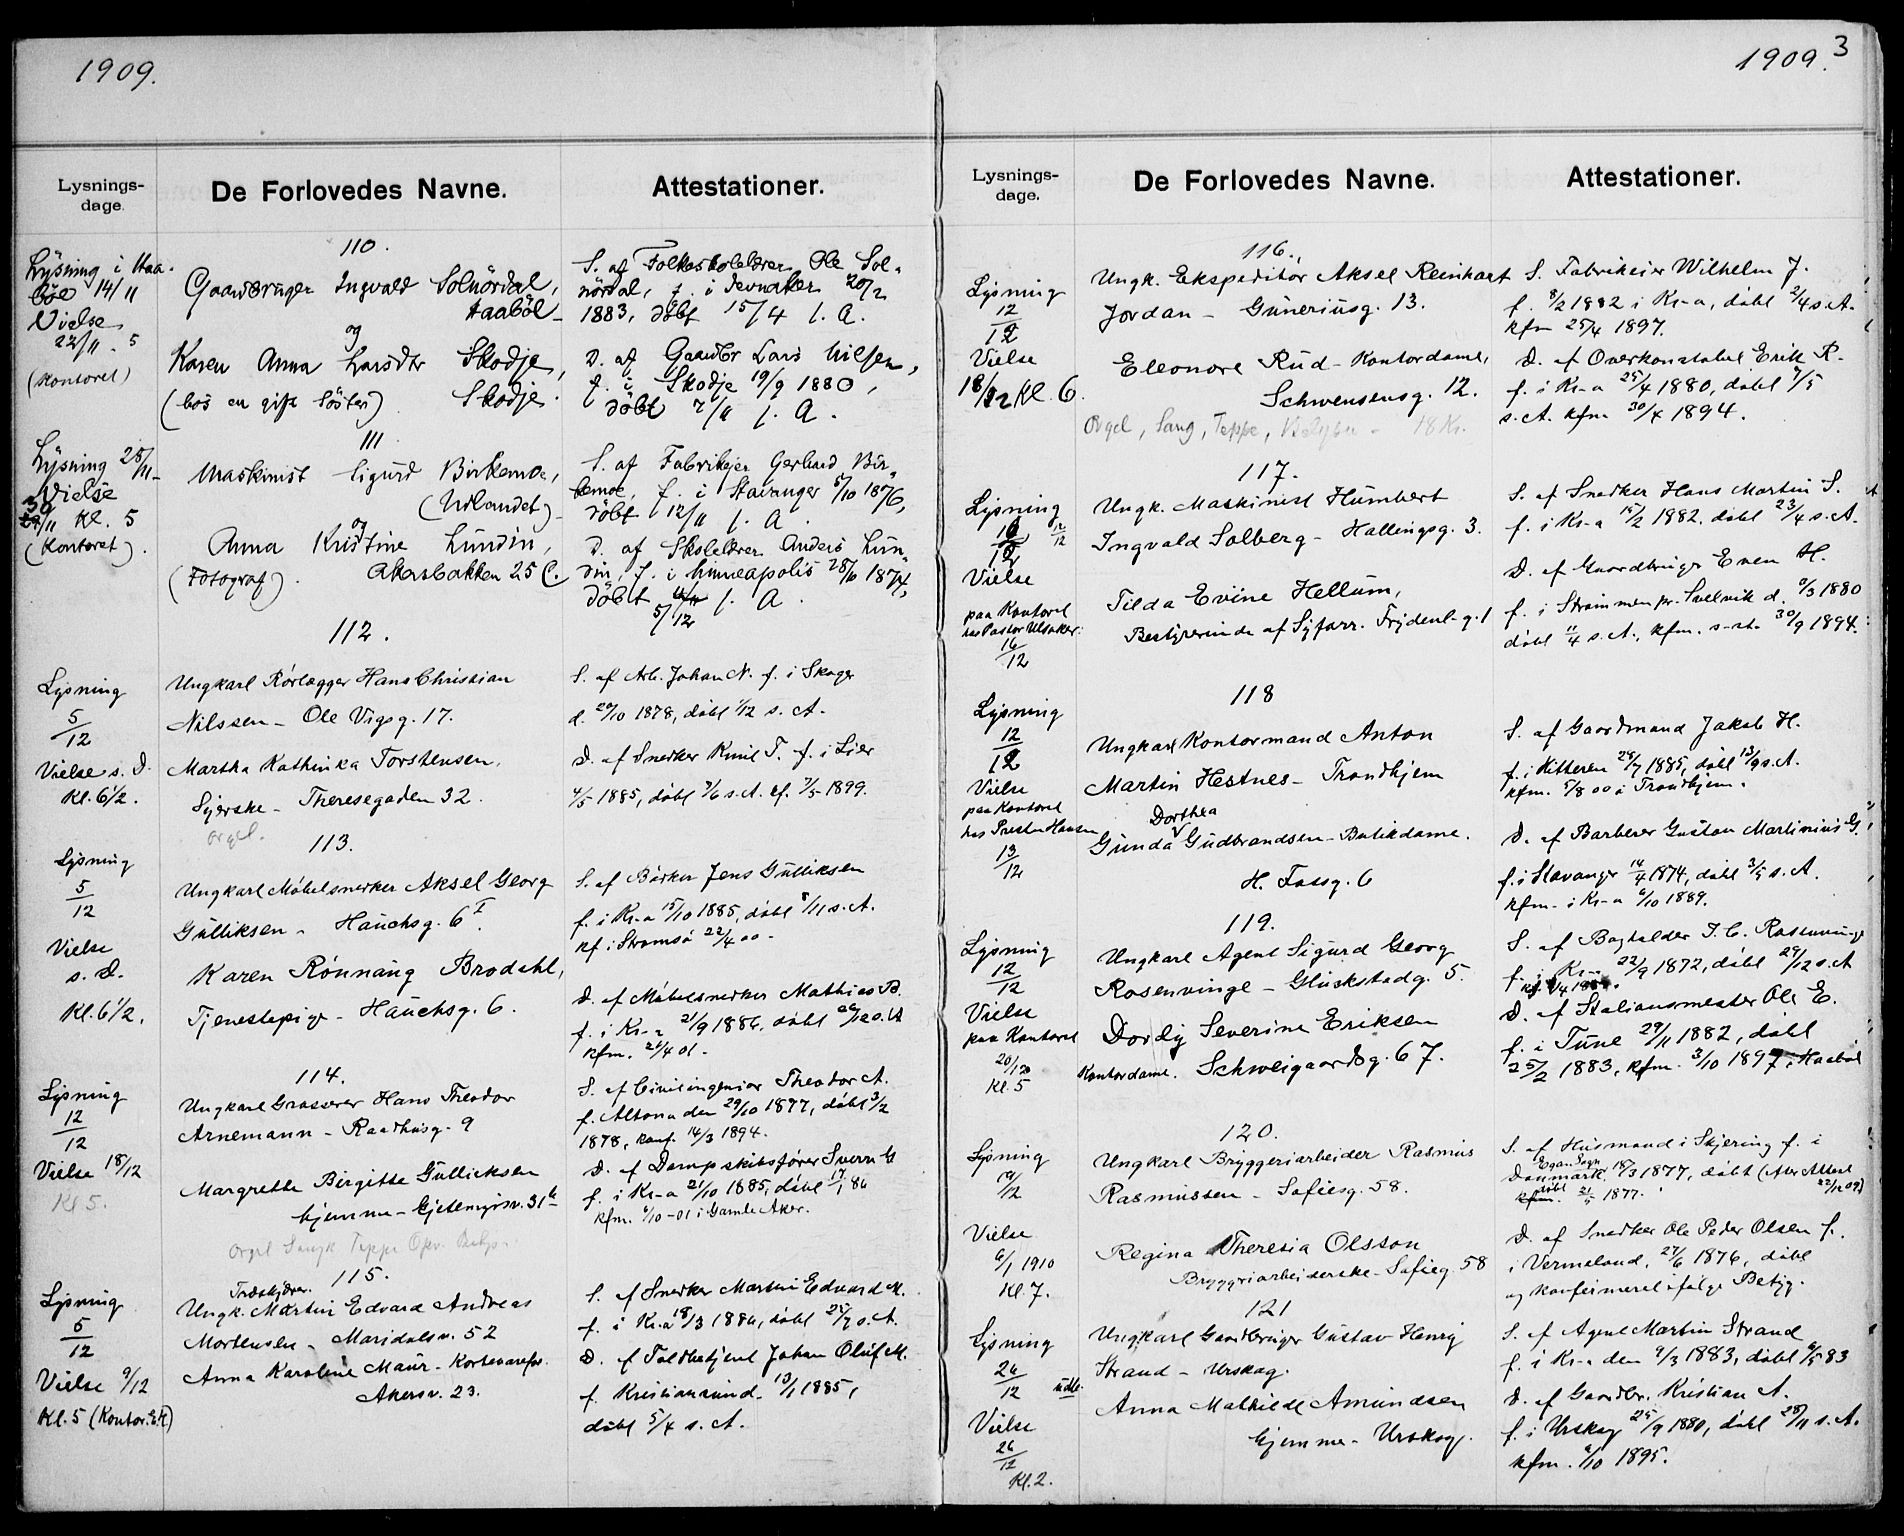 1909.
Lysnings-
dage.
De Forlovedes Navne.
Attestationer.
110.
Lysning i Haa-
böl 14/11
Vielse
22/11 - 5
(Kontoret)
Gaardbruger Ingvald Solnördal,
Haaböl
og
Karen Anna Larsdtr Skodje,
(hos en gift Söster) Skodje.
S. af Folkeskolelærer Ole Sol-
nördal, f. i Jevnaker 20/2
1883, döbt 15/4 s. A.
D. af Gaardbr Lars Nilsen,
f. i Skodje 19/9 1880,
döbt 7/11 s. A.
111.
Lysning 28/11
Vielse
30/11 Kl. 5
(Kontoret).
Maskinist Sigurd Birkemoe,
(Udlandet)
og
Anna Kristine Lundin,
(Fotograf). Akersbakken 25 C.
S. af Fabrikejer Gerhard Bir-
kemoe, f. i Stavanger 5/10 1876,
döbt 12/11 s. A.
D. af Skolelærer Anders Lun-
din, f. i Minneapolis 28/10 1874,
döbt s. A.
5/12
112.
Lysning
5/12
Vielse s. D.
Kl. 6 1/2.
Ungkarl Rörlægger Hans Christian
Nilssen - Ole Vigsg. 17.
Martha Kathinka Torstensen,
Syerske - Theresegaden 32.
Orgel.
S. af Arb. Johan N. f. i Skoger
d. 20/10 1878, döbt 1/12 s. A.
D. af Snedker Knut T. f. i Lier
4/5 1885, döbt 7/6 s. A. kf. 7/5 1899.
113.
Lysning
5/12
Vielse
s. D.
Kl. 6 1/2.
Ungkarl Möbelsnerker Aksel Georg
Gulliksen - Hauchsg. 6 I.
Karen Rönnaug Brodahl,
Tjenestepige - Hauchsg. 6.
S. af Börker Jens Gulliksen
f. i Kr-a 15/10 1885, döbt 8/11 s. A.
kf i Strömsö 22/4 00 -
D. af Möbelsnerker Mathias B.
f. i Kr-a 21/9 1886, döbt s. A
kfm. 21/4 01.
114.
Lysning
12/12
Vielse 18/12
Kl 5.
Ungkarl Grosserer Hans Theodor
Arnemann - Raadhusg. 9
Margrethe Birgitte Gullichsen
hjemme - Gjetemyrsv. 31 b
Orgel Sang Teppe Opv. Belys.
S. af Civilingeniør Theodor A.
f. Altona den 29/10 1877, döbt 3/2
1878, konf. 14/3 1894.
D. af Dampskibsfører Sverre G
f. i Kr-a 21/10 1885, döbt 17/1 86
kfm. 6/10 - 01 i Gamle Aker.
115.
Lysning
5/12
Vielse 9/12
Kl. 5 (Kontoret)
Træskjærer
Ungk. Martin Edvard Andreas
Mortensen - Maridalsv. 52
Anna Karoline Maur - Kortevarefor.
Akersv. 23.
S. af Snedker Martin Edvard M.
f. i Kr.a 18/3 1886, döbt s. A.
D. af Toldbetjent Johan Oluf M.
f. Kristiansund 13/1 1885,
döbt 5/4 s. A.
3
1909.
Lysnings-
dage.
De Forlovedes Navne.
Attestationer.
116.
Lysning
12/12
Vielse
18/12 Kl. 6.
Ungk. Ekspeditör Aksel Reinhart
Jordan - Guneriusg. 13.
Eleonore Rud - Kontordame,
Schwensensg. 12.
Orgel, Sang, Teppe, Belysn - 18 Kr.
S. Fabrikeier Wilhelm J.
f. 8/2 1882 i Kr-a, döbt 2/4 s. A.
kfm 25/4 1897.
D. af Overkonstabel Erik R.
f. i Kr-a 25/4 1880, döbt 7/5
s. A. kfm. 30/4 1894.
117.
Lysning
12/12
Vielse
paa Kontoret
hos Pastor Ulsaker.
16/12
Ungk. Maskinist Humbert
Ingvald Solberg - Hallingsg. 3.
Tilda Evine Hellum,
Bestyrerinde af Syforr. Frydenl. g. 1
S. af Snedker Hans Martin S.
f. i Kr-a 15/2 1882, döbt 23/4 s. A.
D. af Gaardbruger Even H.
f. i Strömmen pr. Svelvik d. 9/3 1880
döbt 11/4 s. A., kfm. s. st. 30/9 1894.
118
Lysning
12/12
Vielse
paa Kontoret
hos Presten Hansen
13/12
Ungkarl Kontormand Anton
Martin Hestnes - Trondhjem
Dorthea
Gunda Gudbrandsen - Butikdame.
H. Fossg. 6
S. af Gaardmand Jakob H.
f. i Hitteren 29/7 1885, döbt 13/9 s. A.
kfm. 5/8 00 i Trondhjem.
D. af Barberer Gustav Martinius G.
f. i Stavanger 14/4 1874, döbt 3/5 s. A.
kfm. i Kr-a 6/10 1889.
119.
Lysning
12/12
Vielse
paa Kontoret
20/12
Kl. 5
Ungkarl Agent Sigurd Georg
Rosenvinge - Glückstadg. 5.
Dordy Severine Eriksen
Kontordame. Schweigaardsg. 67.
S. af Bogholder J. C. Rosenvinge
f. i Kr-a 22/9 1872, döbt 29/12 s. A
D. af Stationsmester Ole E.
f. i Tune 29/11 1882, döbt
25/2 1883, kfm. 3/10 1897, Haaböl
120.
Lysning
19/12
Vielse
6/1 1910
Kl. 7.
Ungkarl Bryggeriarbeider Rasmus
Rasmussen - Sofiesg. 58.
Regina Theresia Olsson
Bryggeriarbeiderske - Sofieg. 58
S. af Husmand i Skjering f. i
Egaa Sogn
Danmark, 18/3 1877, döbt (Akr. Attest
22/12 09)
döbt 21/5 1877.
D. af Snedker Ole Peder Olsen f.
i Vermeland, 27/6 1876, döbt
og konfirmeret ifölge Betyg.
121
Lysning
26/12 udl.
Vielse
26/12
Kl. 2.
Ungkarl Gaardbruger Gustav Henry
Strand - Urskog.
Anna Mathilde Amundsen
hjemme - Urskog.
S. af Agent Martin Strand
f. i Kr-a den 9/3 1883, döbt 6/5 83
D. af Gaardbr. Kristian A.
f. i Urskog 25/9 1880, döbt 28/11 s. A.
kfm. 6/10 1895.